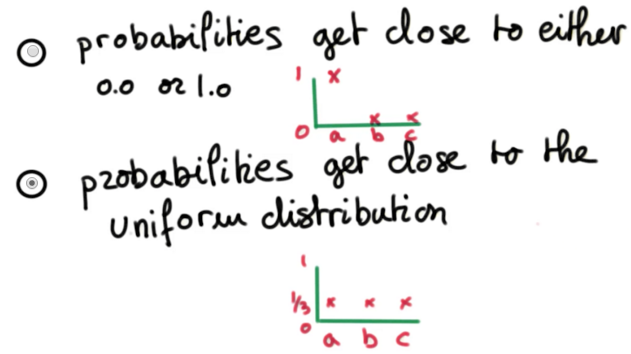 probabilities get close to either
0.0 or 1.0
1
0 a b c
probabilities get close to the
uniform distribution
1
1/3
0
a b c